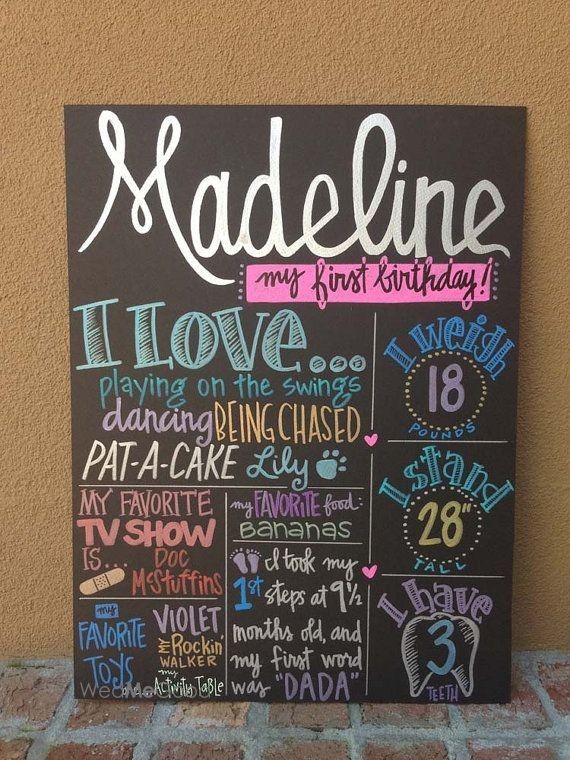 Madeline
my first birthday!
I LOVE...
playing on the swings
dancing BEING CHASED
PAT-A-CAKE Lily
MY FAVORITE
TV SHOW
IS...
DOC
McSTUFFINS
my
FAVORITE
TOYS
are...
VIOLET
MY Rockin'
WALKER
my
Activity Table
my FAVORITE food:
BANANAS
I took my
1st steps at 9 1/2
months old, and
my first word
was "DADA"
I weigh
18
POUNDS
I stand
28"
TALL
I have
3
TEETH